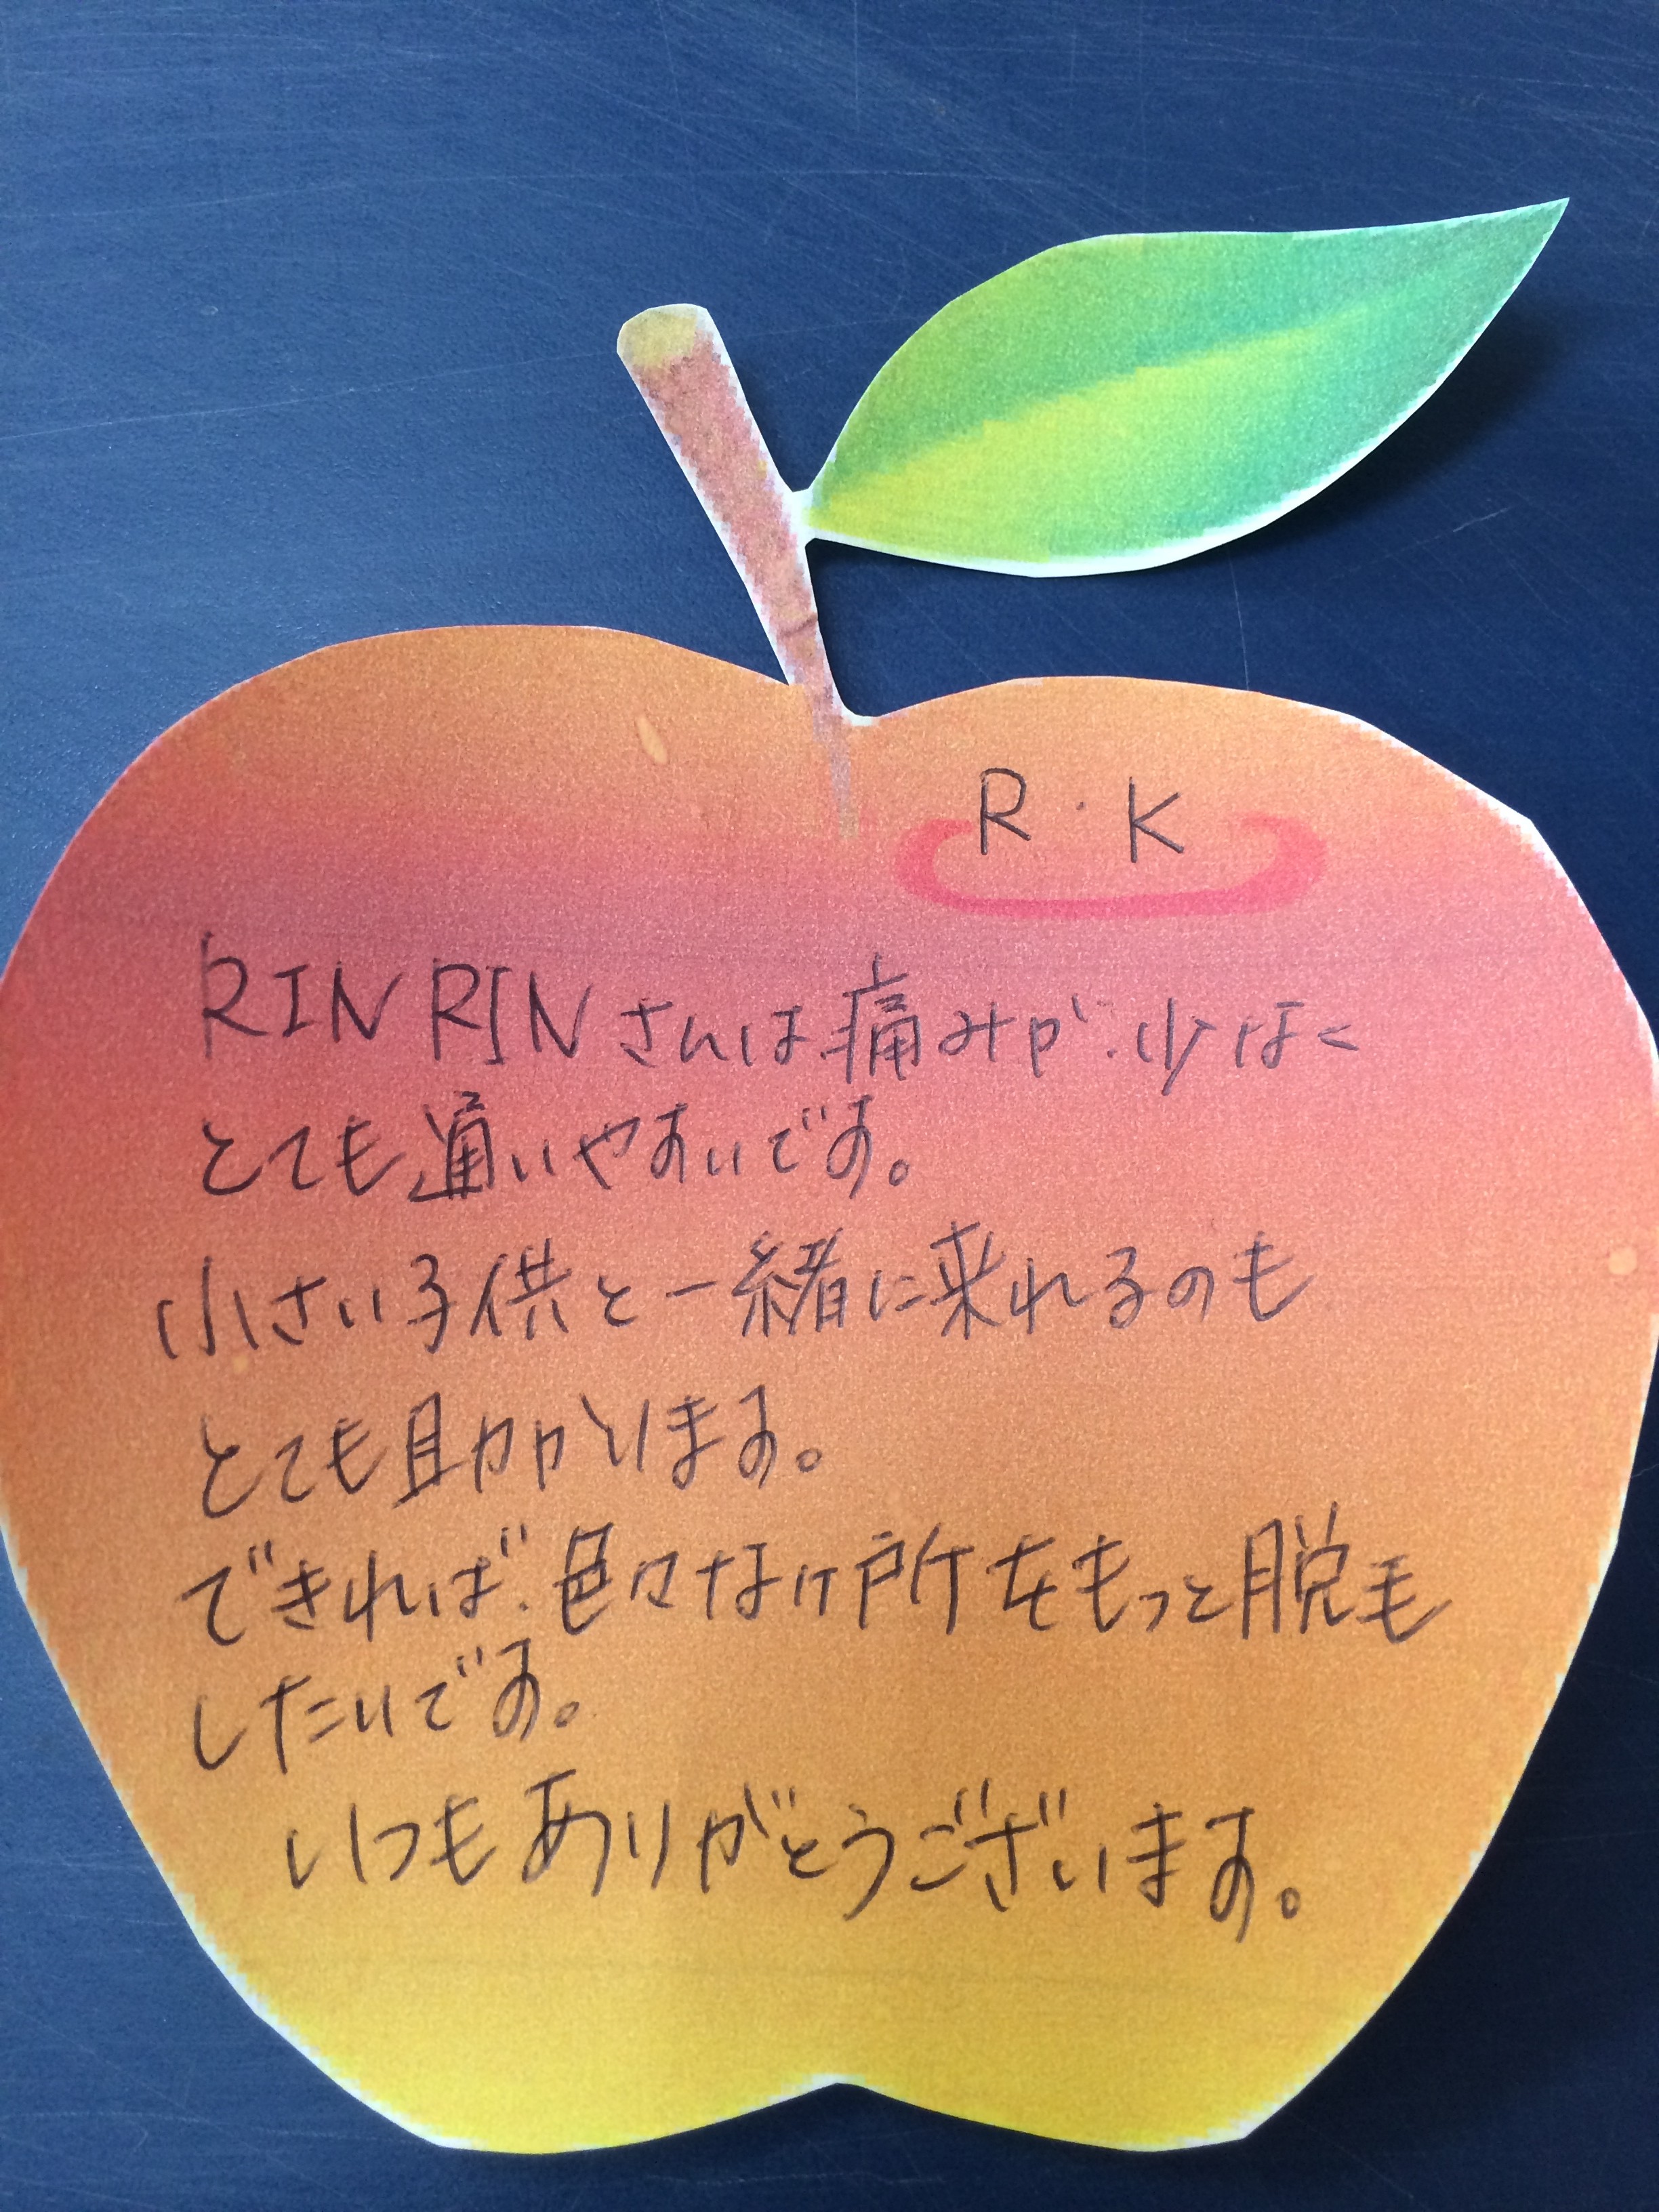 R・K
RINRINさんは痛みが少なく
とても通いやすいです。
小さい子供と一緒に来れるのも
とても助かります。
できれば、色々なヶ所をもっと脱毛
したいです。
いつもありがとうございます。